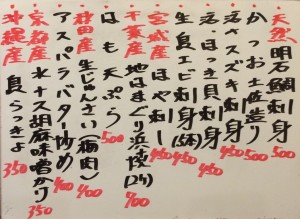 天然 明石鯛刺身 500
かつお土佐造り 500
活〆スズキ刺身 450
活ほっき貝刺身 450
エビ刺身(5本) 450
宮城産 ほや刺し 450
千葉産 地はまぐり浜焼(2ケ) 400
はも天ぷら 500
秋田産 生じゅんさい(梅肉) 400
アスパラバター炒め 400
京都産 水ナス胡麻味噌かけ 350
沖縄産 島らっきょ 350